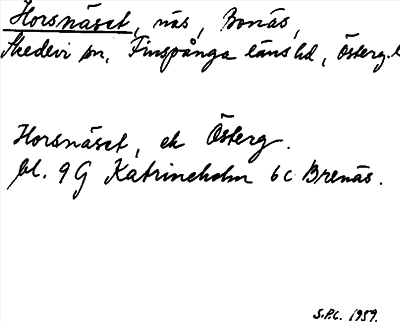 Horsnäset, näs, Bonäs,
Skedevi sn, Finspånga läns hd, Österg. l
Horsnäset, ek Österg.
bl. 9 G Katrineholm 6 c Brenäs.
S.P.C. 1959.